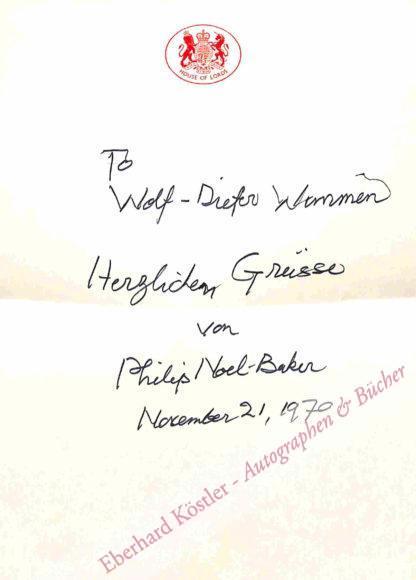 HOUSE OF LORDS
To
Wolf-Dieter Wemmen
Herzlichen Grüsse
von
Philip Noel-Baker
November 21, 1970
Eberhard Köstler - Autographen & Bücher